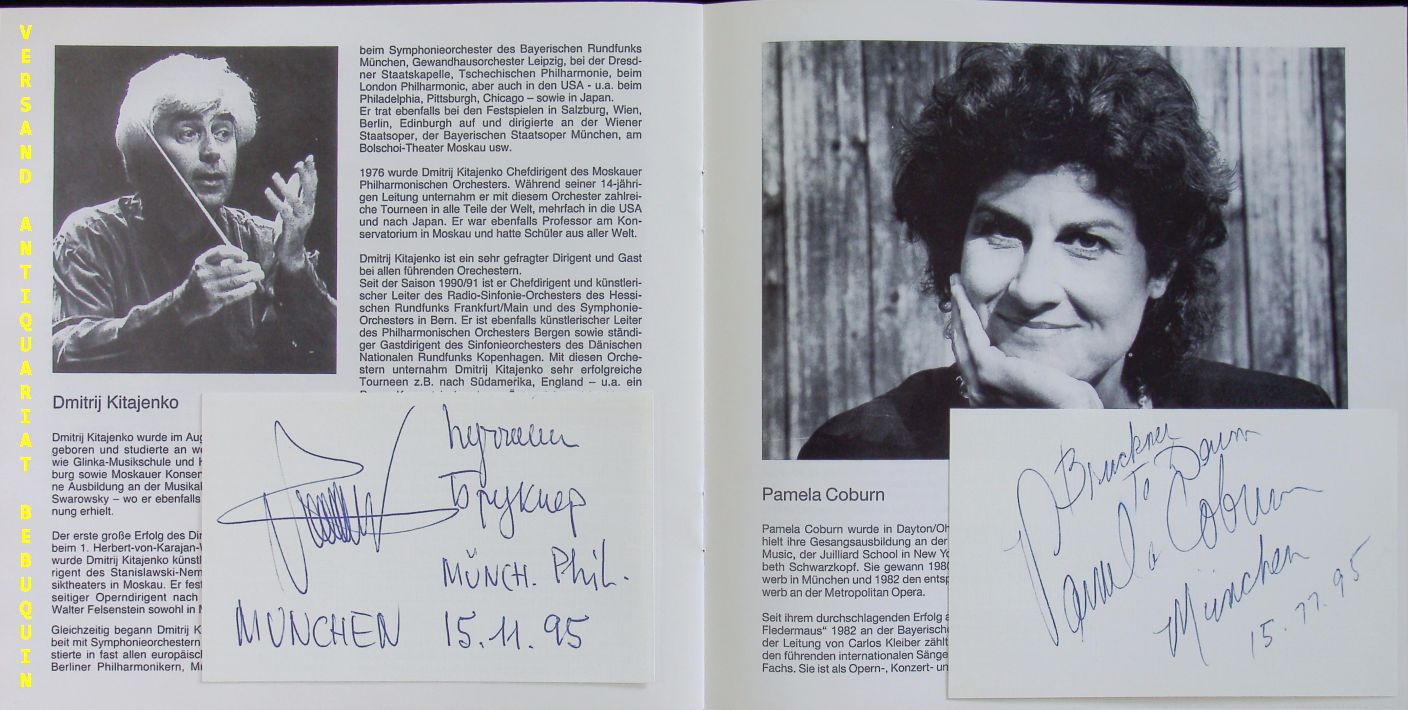 VERSAND ANTIQUARIAT BEBUQUIN
beim Symphonieorchester des Bayerischen Rundfunks
München, Gewandhausorchester Leipzig, bei der Dresd-
ner Staatskapelle, Tschechischen Philharmonie, beim
London Philharmonic, aber auch in den USA - u.a. beim
Philadelphia, Pittsburgh, Chicago – sowie in Japan.
Er trat ebenfalls bei den Festspielen in Salzburg, Wien,
Berlin, Edinburgh auf und dirigierte an der Wiener
Staatsoper, der Bayerischen Staatsoper München, am
Bolschoi-Theater Moskau usw.
1976 wurde Dmitrij Kitajenko Chefdirigent des Moskauer
Philharmonischen Orchesters. Während seiner 14-jähri-
gen Leitung unternahm er mit diesem Orchester zahlrei-
che Tourneen in alle Teile der Welt, mehrfach in die USA
und nach Japan. Er war ebenfalls Professor am Kon-
servatorium in Moskau und hatte Schüler aus aller Welt.
Dmitrij Kitajenko ist ein sehr gefragter Dirigent und Gast
bei allen führenden Orechestern.
Seit der Saison 1990/91 ist er Chefdirigent und künstleri-
scher Leiter des Radio-Sinfonie-Orchesters des Hessi-
schen Rundfunks Frankfurt/Main und des Symphonie-
Orchesters in Bern. Er ist ebenfalls künstlerischer Leiter
des Philharmonischen Orchesters Bergen sowie ständi-
ger Gastdirigent des Sinfonieorchesters des Dänischen
Nationalen Rundfunks Kopenhagen. Mit diesen Orche-
stern unternahm Dmitrij Kitajenko sehr erfolgreiche
Tourneen z.B. nach Südamerika, England – u.a. ein
Dmitrij Kitajenko
Dmitrij Kitajenko wurde im Aug
geboren und studierte an we
wie Glinka-Musikschule und
burg sowie Moskauer Konser
ne Ausbildung an der Musikal
Swarowsky – wo er ebenfalls
nung erhielt.
Der erste große Erfolg des Dir
beim 1. Herbert-von-Karajan-
wurde Dmitrij Kitajenko künstl
rigent des Stanislawski-Nem
siktheaters in Moskau. Er fest
seitiger Operndirigent nach
Walter Felsenstein sowohl in
Gleichzeitig begann Dmitrij K
beit mit Symphonieorchestern
stierte in fast allen europäisc
Berliner Philharmonikern, Mü
Брукнер
MÜNCH. Phil.
MÜNCHEN 15.11.95
Pamela Coburn
Pamela Coburn wurde in Dayton/Oh
hielt ihre Gesangsausbildung an der
Music, der Juilliard School in New Yo
beth Schwarzkopf. Sie gewann 1980
werb in München und 1982 den entsp
werb an der Metropolitan Opera.
Seit ihrem durchschlagenden Erfolg a
Fledermaus“ 1982 an der Bayerisch
der Leitung von Carlos Kleiber zählt
den führenden internationalen Sänge
Fachs. Sie ist als Opern-, Konzert- un
Bruckner
Te Deum
Pamela Coburn
München
15.11.95